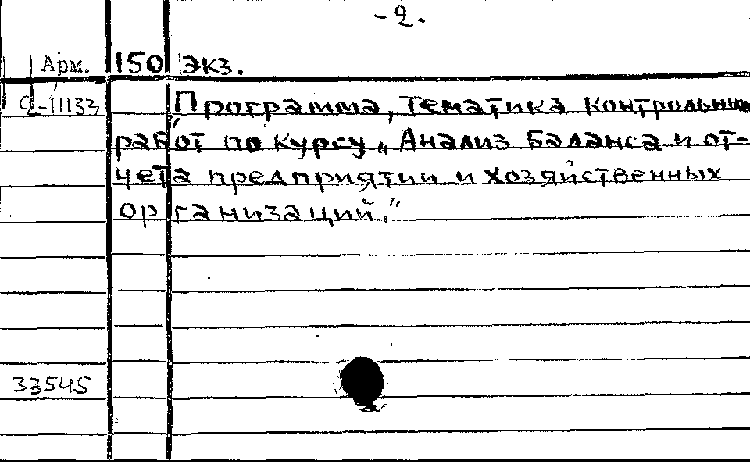 -2.
Арм. 150 экз.
2-11133 „Программа, тематика контрольных
работ по курсу „Анализ баланса и от-
чета предприятии и хозяйственных
организаций."
33545